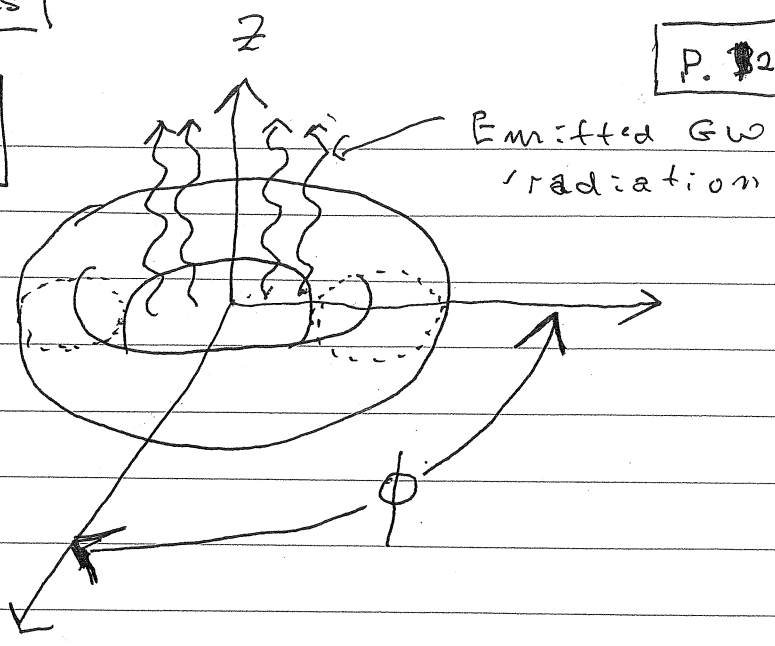 Z
P. 2
Emitted GW
radiation
ϕ